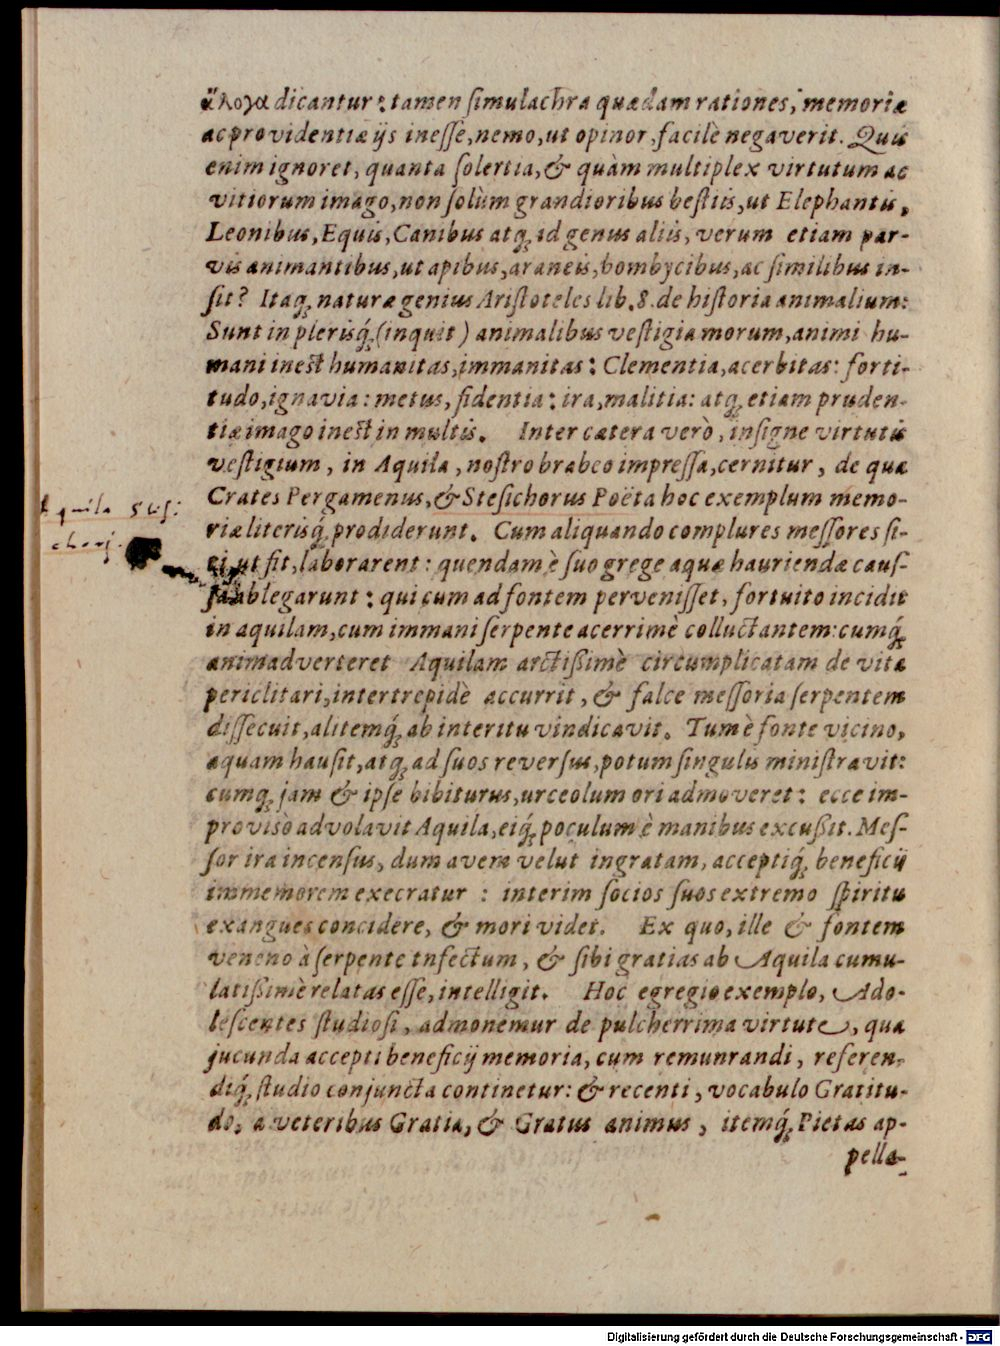 ἄλογα dicantur: tamen ſimulachra quædam rationes, memoriæ
ac providentiæ ijs ineſſe, nemo, ut opinor, facilè negaverit. Quis
enim ignoret, quanta ſolertia, & quàm multiplex virtutum ac
vitiorum imago, non ſolùm grandioribus beſtiis, ut Elephantis,
Leonibus, Equis, Canibus atq́; id genus aliis, verum etiam par-
vis animantibus, ut apibus, araneis, bombycibus, ac ſimilibus in-
ſit? Itaq; naturæ genius Ariſtoteles lib. 8. de hiſtoria animalium:
Sunt in plerisq́; (inquit) animalibus veſtigia morum, animi hu-
mani ineſt humanitas, immanitas: Clementia, acerbitas: forti-
tudo, ignavia: metus, fidentia: ira, malitia: atq; etiam pruden-
tiæ imago ineſt in multis. Inter cætera verò, inſigne virtutis
veſtigium, in Aquila, noſtro brabeo impreſſa, cernitur, de qua
Crates Pergamenus, & Steſichorus Poëta hoc exemplum memo-
Aquila Steſi
riæ literisq́; prodiderunt. Cum aliquando complures meſſores ſi-
chorj.
ti, ut fit, laborarent: quendam è ſuo grege aquæ hauriendæ cauſ-
ſa ablegarunt: qui cum ad fontem perveniſſet, fortuito incidit
in aquilam, cum immani ſerpente acerrimè colluctantem: cumq́;
animadverteret Aquilam arctißimè circumplicatam de vita
periclitari, intertrepidè accurrit, & falce meſſoria ſerpentem
diſſecuit, alitemq́; ab interitu vindicavit. Tum è fonte vicino,
aquam hauſit, atq; ad ſuos reverſus, potum ſingulis miniſtravit:
cumq; jam & ipſe bibiturus, urceolum ori admoveret: ecce im-
proviſò advolavit Aquila, eiq́; poculum è manibus excußit. Meſ-
ſor ira incenſus, dum avem velut ingratam, acceptiq́; beneficij
immemorem execratur: interim ſocios ſuos extremo ſpiritu
exangues concidere, & mori videt. Ex quo, ille & fontem
veneno à ſerpente infectum, & ſibi gratias ab Aquila cumu-
latißimè relatas eſſe, intelligit. Hoc egregio exemplo, Ado-
leſcentes ſtudioſi, admonemur de pulcherrima virtute, qua
jucunda accepti beneficij memoria, cum remunrandi, referen-
diq́; ſtudio conjuncta continetur: & recenti, vocabulo Gratitu-
do, a veteribus Gratia, & Gratus animus, itemq́; Pietas ap-
pella-
Digitalisierung gefördert durch die Deutsche Forschungsgemeinschaft - DFG